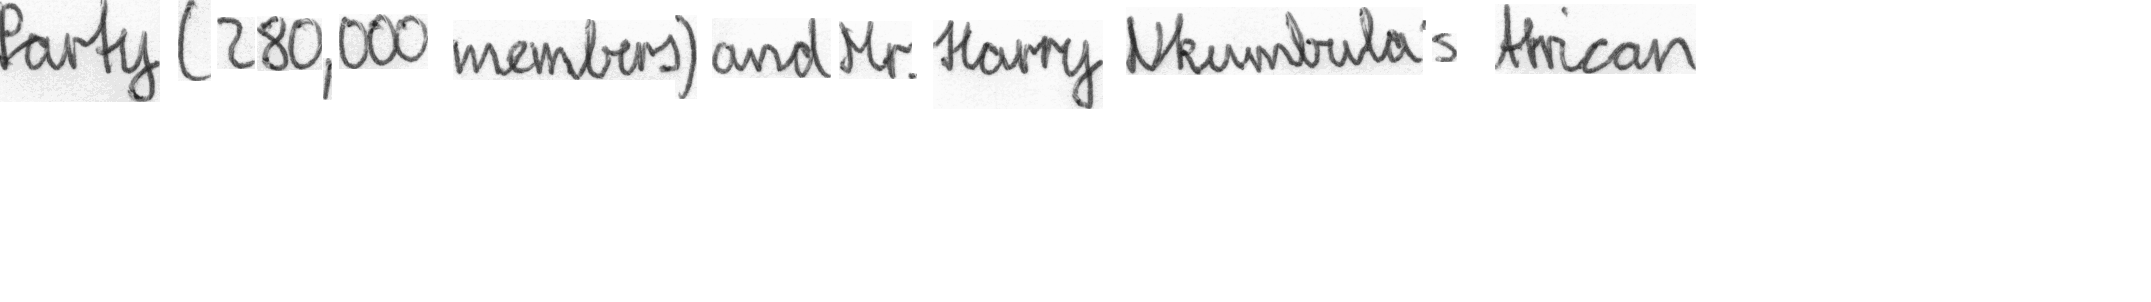 Party (280,000 members) and Mr. Harry Nkumbula's African